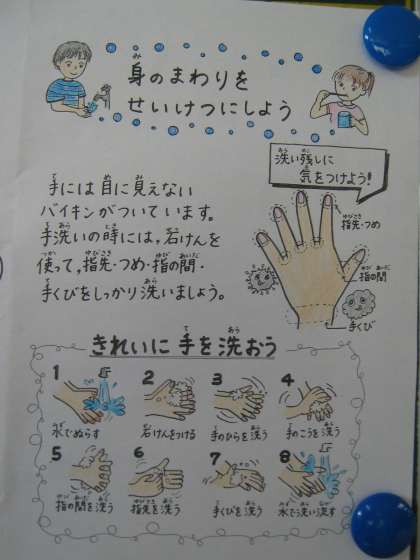 身のまわりを
せいけつにしよう
洗い残しに
気をつけよう!
手には目に見えない
バイキンがついています。
手洗いの時には,石けんを
使って,指先・つめ・指の間・
手くびをしっかり洗いましょう。
指先・つめ
指の間
手くび
きれいに手を洗おう
1 2 3 4
水でぬらす 石けんをつける 手のひらを洗う 手のこうを洗う
5 6 7 8
指の間を洗う 指先を洗う 手くびを洗う 水で洗い流す